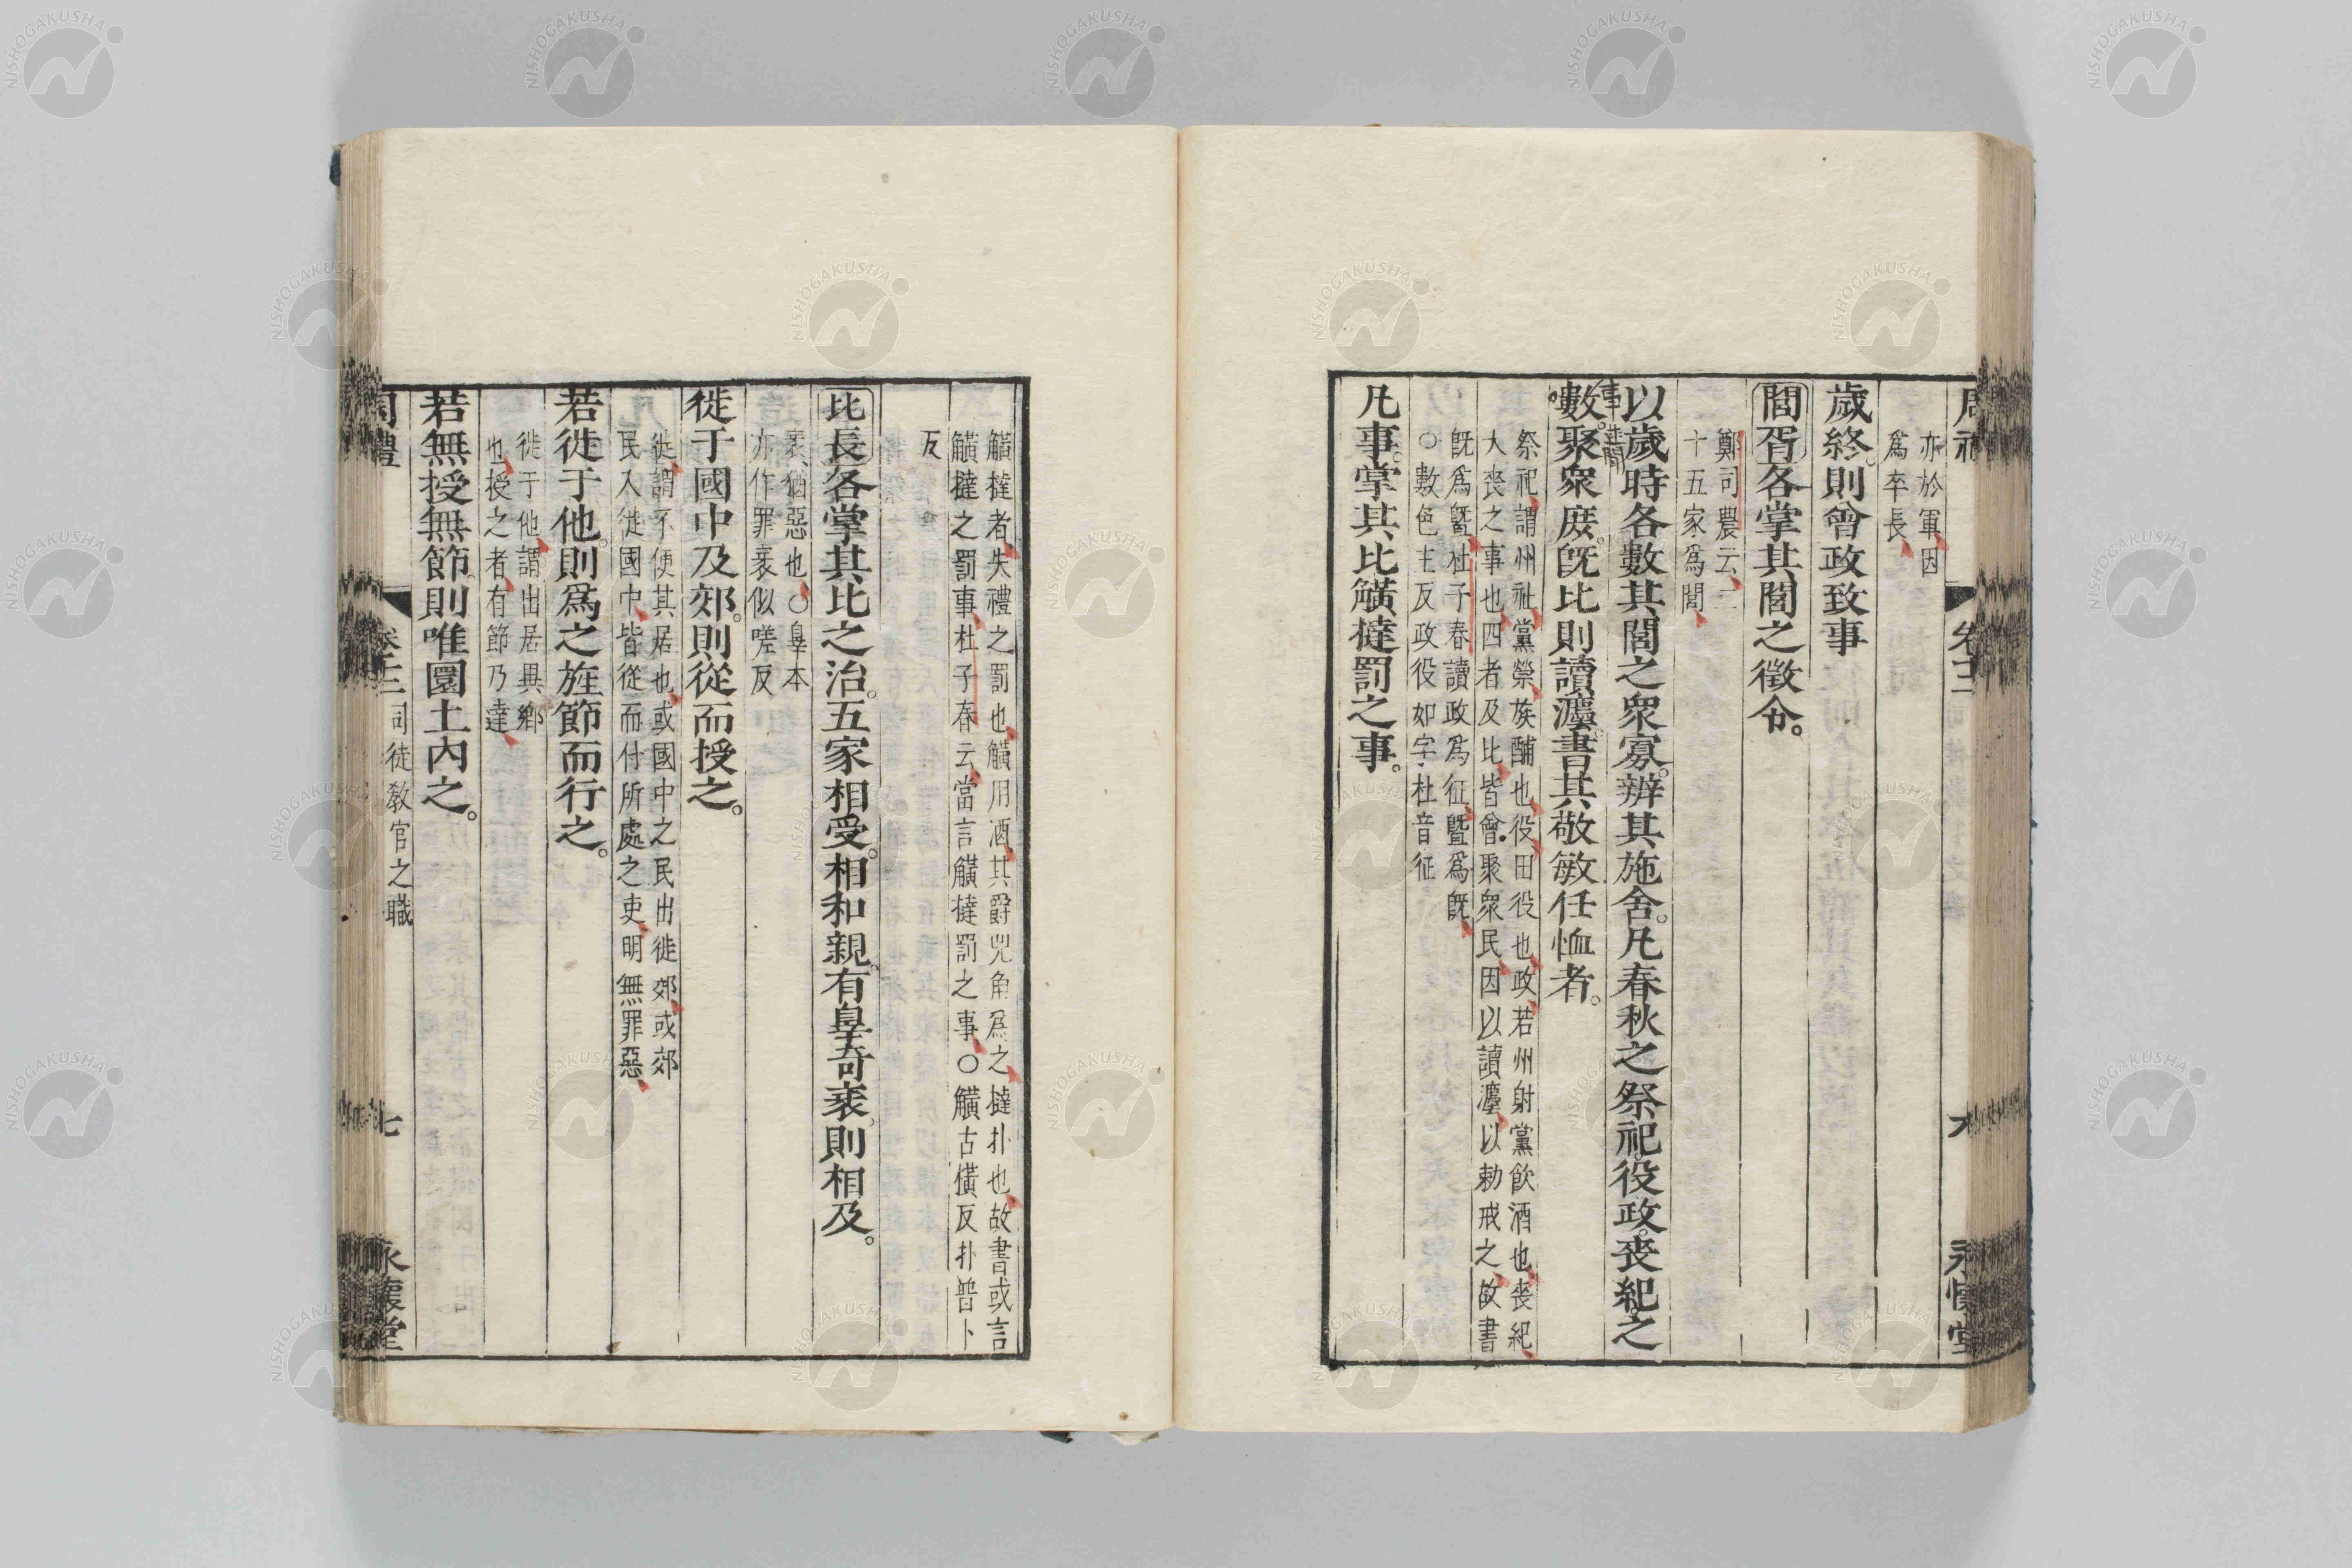 亦於軍因
爲卒長
歲終則會政致事
閭胥各掌其閭之徵令。
鄭司農云二
十五家爲閭
以歲時各數其閭之衆寡。辨其施舍。凡春秋之祭祀。役政。喪紀之
數。聚衆庶。旣比則讀灋。書其敬敏任恤者。
祭祀謂州社黨禜族酺也役田役也政若州射黨飲酒也喪紀
大喪之事也四者及比皆會聚衆民因以讀灋以勑戒之故書
旣爲曁杜子春讀政爲征曁爲旣
○數色主反政役如字杜音征
凡事。掌其比觵撻罰之事。
觵撻者失禮之罰也觵用酒其爵兕角爲之撻扑也故書或言
觵撻之罰事杜子春云當言觵撻罰之事○觵古橫反扑普卜
反
比長各掌其比之治。五家相受。相和親。有辠奇衺。則相及。
衺猶惡也○辠本
亦作罪衺似嗟反
徙于國中及郊。則從而授之。
徙謂不便其居也或國中之民出徙郊或郊
民入徙國中皆從而付所處之吏明無罪惡
若徙于他。則爲之旌節而行之。
徙于他謂出居異鄉
也授之者有節乃達
若無授無節。則唯圜土內之。
周禮
司徒敎官之職
七
永懷堂